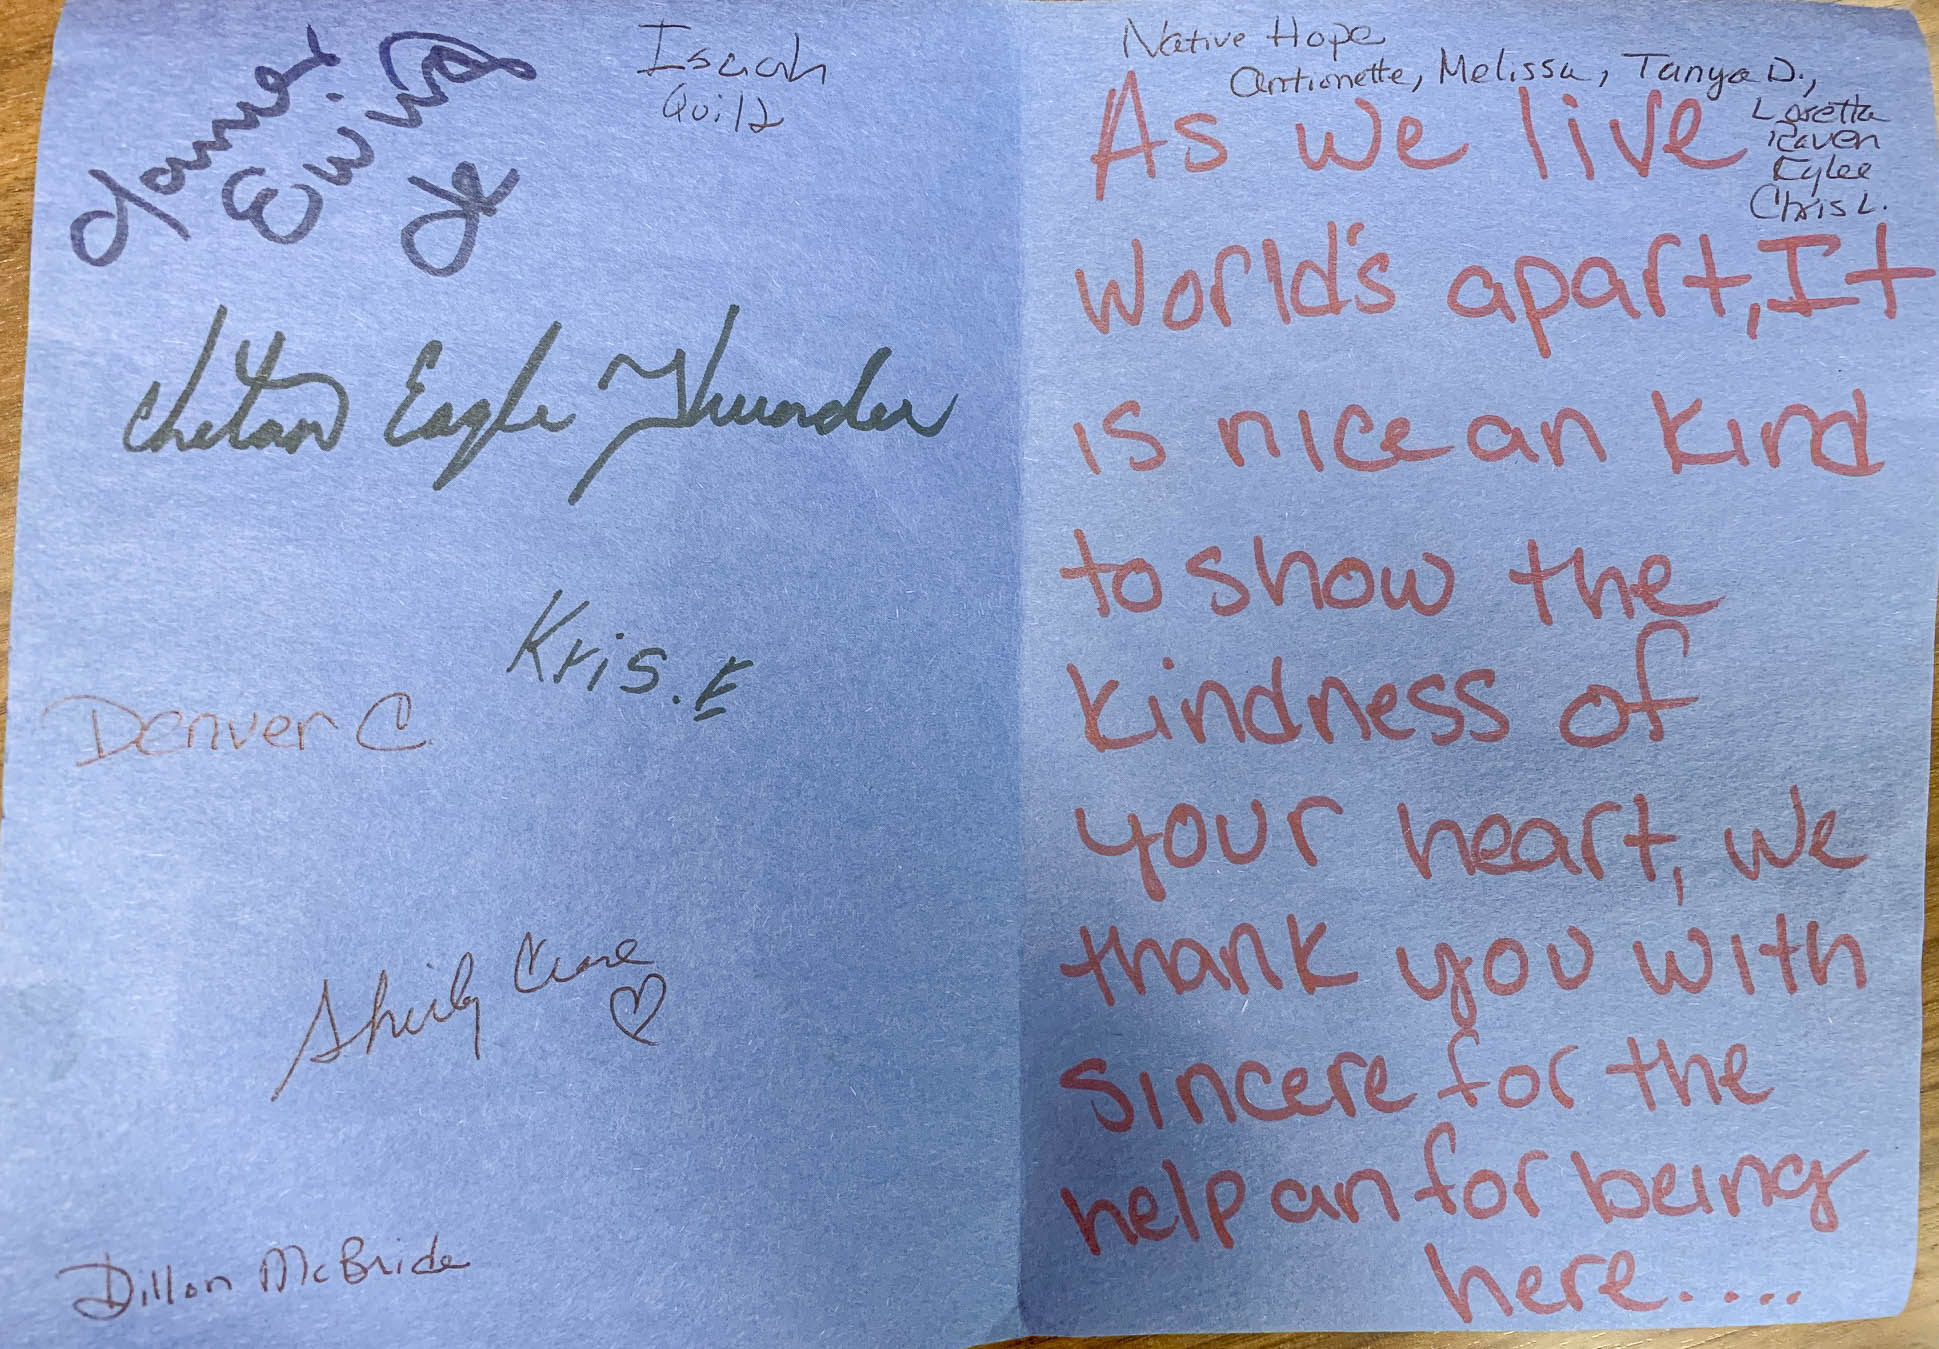 Ewing
Jr
Isaiah
Quilt
Chetan Eagle Thunder
Kris. E
Denver C.
Crane
Dillon McBride
Native Hope
Antionette, Melissa, Tanya D.,
Loretta
Raven
Kylee
Chris L.
As we live
world's apart, It
is nice an kind
to show the
kindness of
your heart, we
thank you with
sincere for the
help an for being
here....